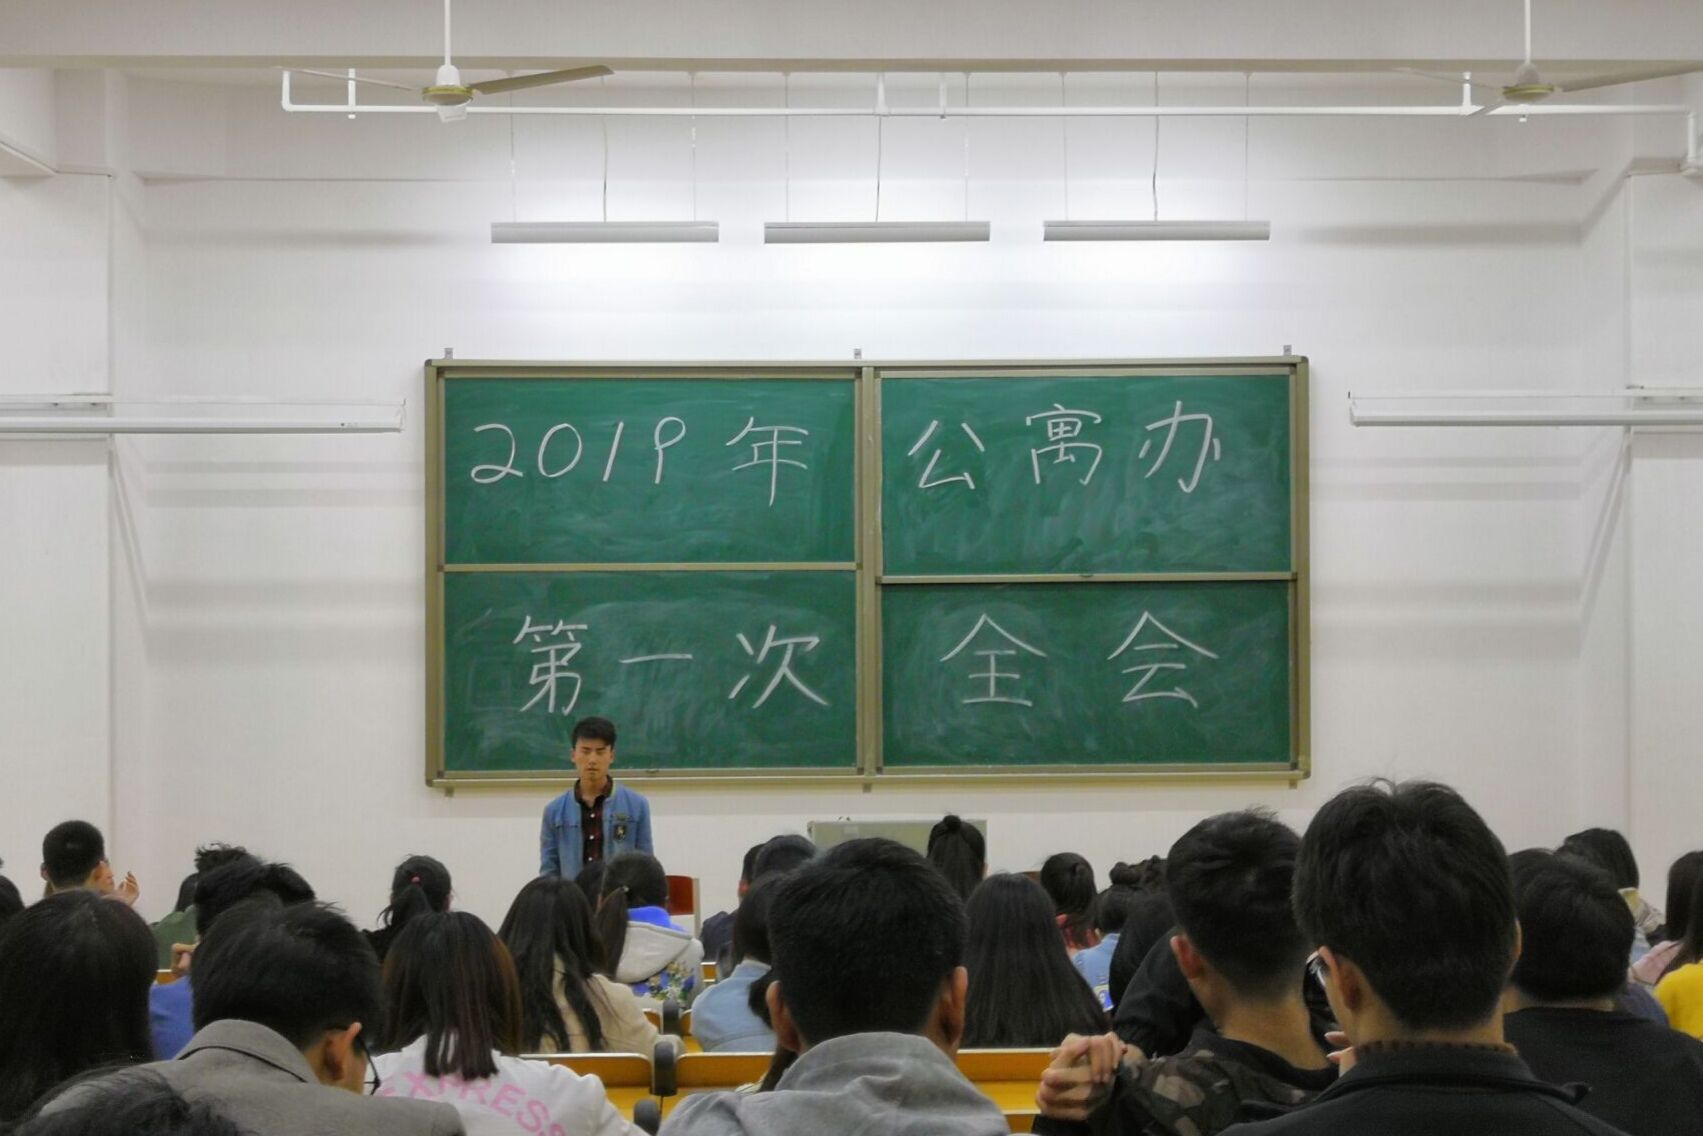 2019年 公寓办
第一次 全会
EXPRESS